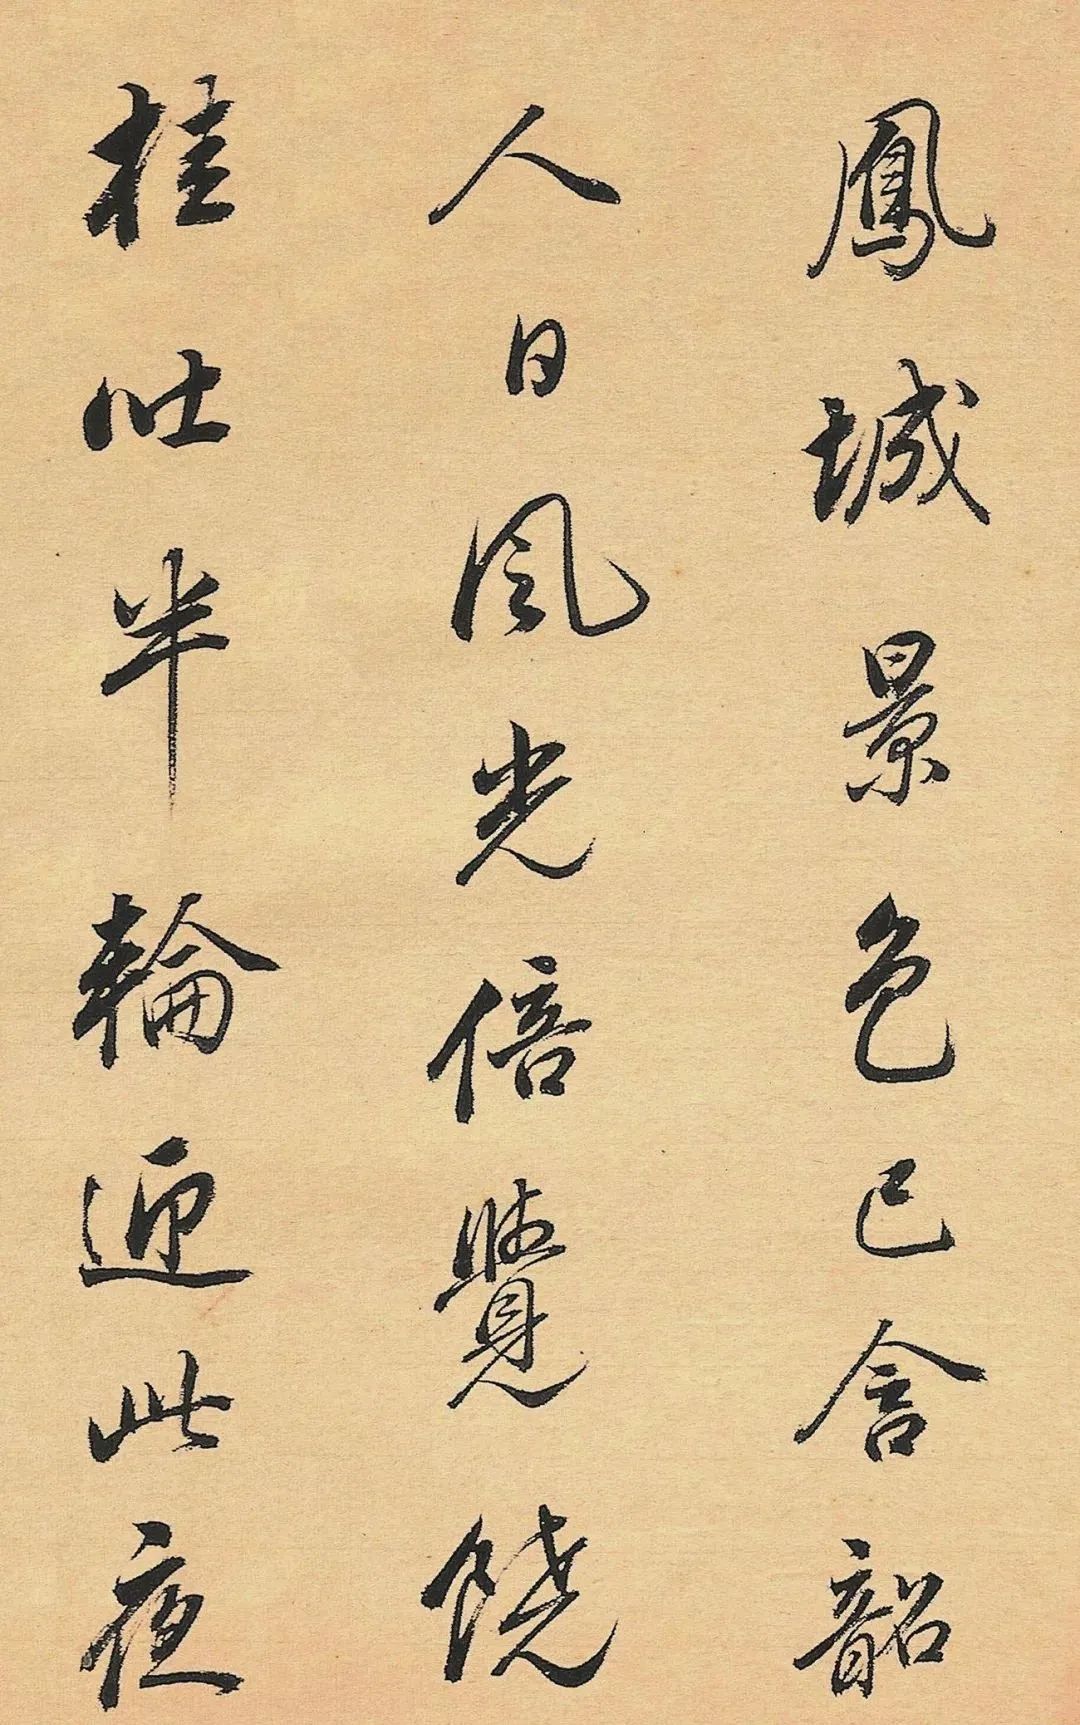 鳳城景色已含韶
人日風光倍覺饒
桂吐半輪迎此夜